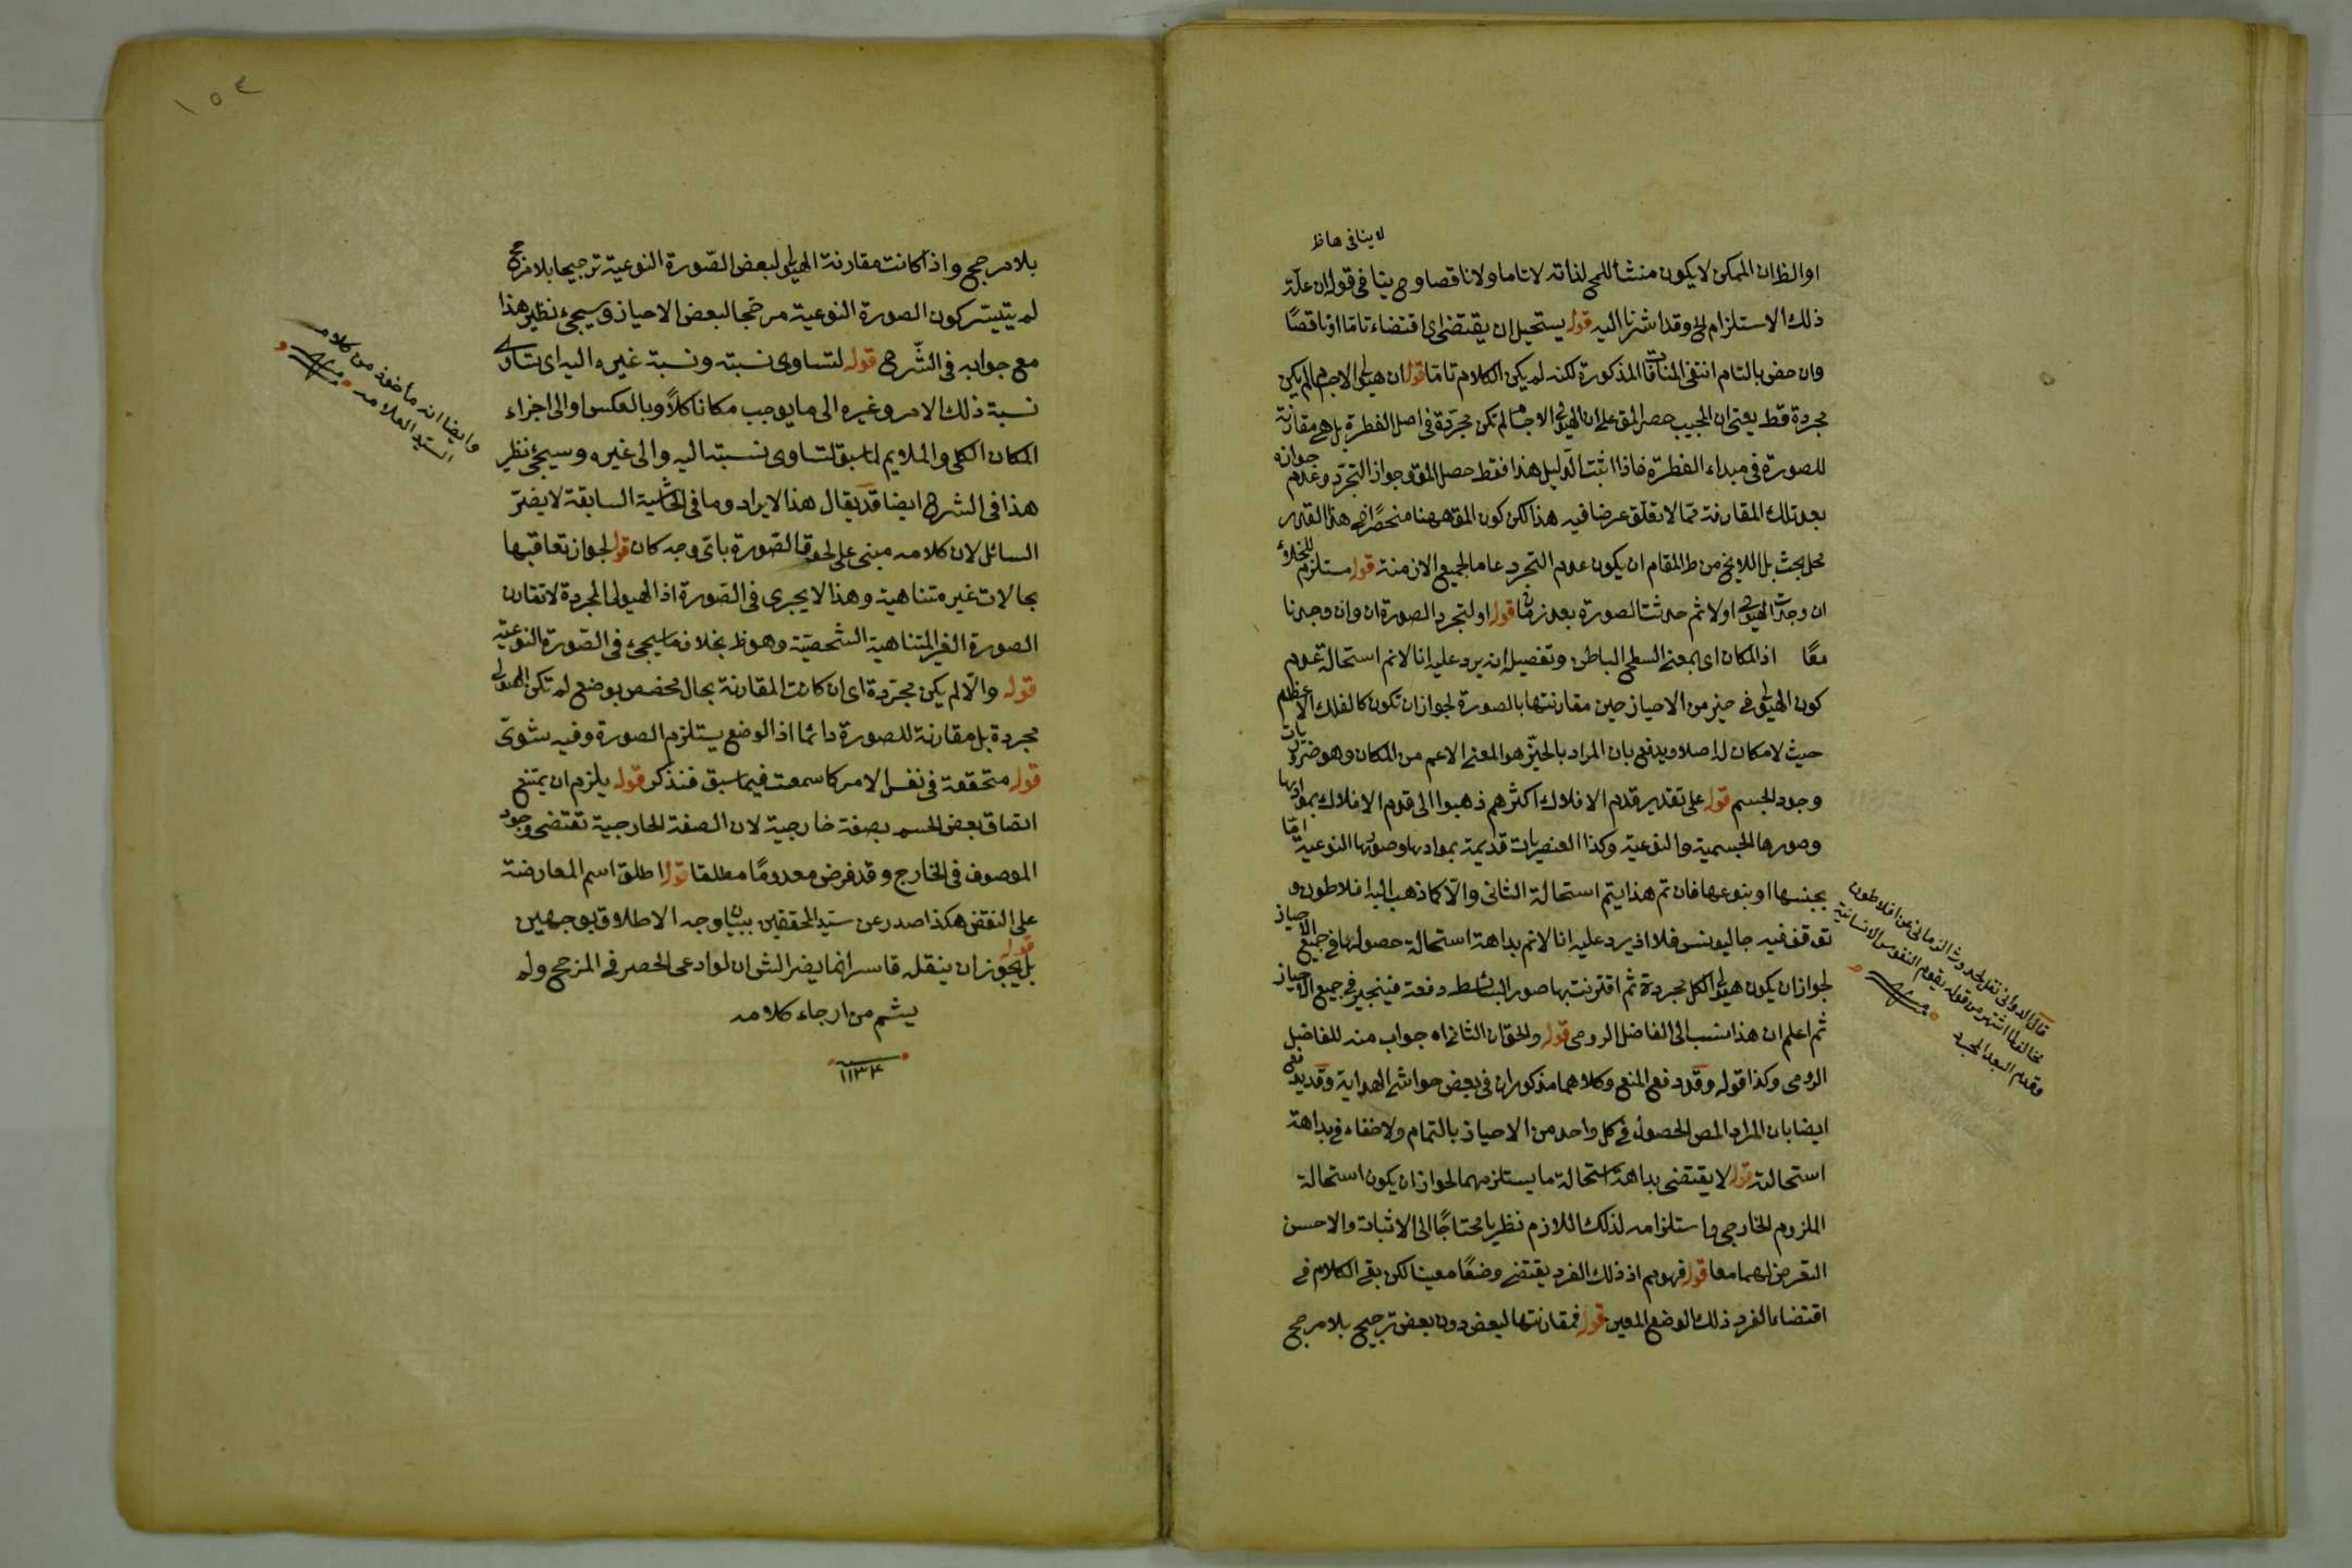 لا ينافى هاظ
او الظ ان الممكن لا يكون منشأ للمح لذاته لا تاما ولا ناقصا وح ينافى قوله ان علة
ذلك الاستلزام الى وقد اشرنا اليه قوله يستحيل ان يقتضى اى اقتضاء تاما او ناقصًا
وان خص بالتام انتفى المنافات المذكورة لكنه لم يكن الكلام تامّا قوله ان هيولى الاجسام لم يكن
مجردة قط يعنى ان المجيب حصر المق على ان الهيولى الاجسام لم تكن مجردة فى اصل الفطرة بل هى مقارنة
للصورة فى مبداء الفطرة فاذا اثبت الدليل هذا فقط حصل المق وجواز التجرد وعدم جوازه
بعد تلك المقارنة مّما لا تعلق عرضا فيه هذا لكن كون المق ههنا منحصرًا فى هذا القدر
محل بحث بل اللايح من ط المقام ان يكون عدم التجرد عاما لجميع الازمنة قوله مستلزم للخلاء
ان وجدت الهيولى اولا ثم حدثت الصورة بعد زمان قوله او لتجرد الصورة ان وان وجدنا
معًا اذ المكان اى بمعنى السطح الباطن وتفصيله انه يرد عليه انا لا نم استحالة عدم
كون الهيولى فى حيز من الاحياز حين مقارنتها بالصورة لجواز ان تكون كالفلك الاعظم
حيث لا مكان له اصلا ويدفع بان المراد بالحيّز هو المعنى الاعم من المكان وهو ضروريات
وجود الجسم قوله على تقدير قدم الافلاك اكثرهم ذهبوا الى قدم الافلاك بموادها
وصورها الجسمية والنوعية وكذا العنصريات قديمة بموادها وصورها النوعية امّا
بجنسها او بنوعها فان تم هذا يتم استحالة الثانى والّا كما ذهب اليه افلاطون و
توقف فيه جالينوس فلا اذ يرد عليه انا لا نم بداهة استحالة حصولها فى جميع الاحياز
لجواز ان يكون هيولى الكل مجردة ثم اقترنت بها صور البسائط دفعة فيتحيز فى جميع الاحياز
ثم اعلم ان هذا نسب الى الفاضل الرومى قوله والحق ان الثانى اه جواب منه للفاضل
الرومى وكذا قوله وقد دفع المنع وكلاهما مذكوران فى بعض حواشى الهداية وقد يدفع
ايضا بان المراد المص الحصول فى كل واحد من الاحياز بالتمام ولا خفاء فى بداهة
استحالته قوله لا يقتضى بداهة استحالة ما يستلزمهما لجواز ان يكون استحالة
الملزوم الخارجى واستلزامه لذلك اللازم نظريا محتاجًا الى الاثبات والاحسن
التعرض لهما معا قوله فهو بم اذ ذلك الفرد يقتضى وضعًا معينا لكن بقى الكلام فى
اقتضاء الفرد ذلك الوضع المعين قوله فمقارنتها لبعض دون بعض ترجيح بلا مرجح
قال الدوانى نقل الحدوث الزمانى عن افلاطون
مخالف لما اشتهر من قوله بقدم النفوس الانسانية
وقدم البعد المجرد منه
بلا مرجح واذا كانت مقارنة الهيولى لبعض الصّورة النوعية ترجيحا بلا مرجح
لم يتيسّر كون الصورة النوعية مرجّحا لبعض الاحياز وسيجئ نظير هذا
مع جوابه فى الشّرح قوله لتساوى نسبته ونسبة غيره اليه اى تساوى
نسبة ذلك الامر وغيره الى ما يوجب مكانا كلاًّ وبالعكس او الى اجزاء
المكان الكلى والملايم لما سبق لتساوى نسبته اليه والى غيره وسيجئ نظير
هذا فى الشرح ايضا قد يقال هذا الايراد وما فى الحاشية السابقة لا يضرّ
السائل لان كلامه مبنى على لحوق الصّورة باىّ وجه كان قوله لجواز تعاقبها
بحالات غير متناهية وهذا لا يجرى فى الصّورة اذ الهيولى المجردة لا تقارن
الصورة الغير المتناهية الشخصيّة وهو ظ بخلاف ما سيجئ فى الصّورة النوعيّة
قوله والّا لم يكن مجرّدة اى ان كانت المقارنة بحال مخصص بوضع لم تكن الهيولى
مجردة بل مقارنة للصورة دائما اذ الوضع يستلزم الصورة وفيه شوىّ
قوله متحققة فى نفس الامر كما سمعت فيما سبق فتذكر قوله يلزم ان يمتنع
اتصاف بعض الجسم بصفة خارجية لان الصفة الخارجية تقتضى وجود
الموصوف فى الخارج وقد فرض معدومًا مطلقا قوله اطلق اسم المعارضة
على النقض هكذا صدر عن سيّد المحققين ببيان وجه الاطلاق بوجهين
قوله بل يجوز ان ينقله قاسر انما يضر الش ان لو ادعى الحصر فى المرجح ولم
يشم من ارجاء كلامه
١١٣٤
وايضا انه مأخوذ من كلام
السيّد العلامه منه